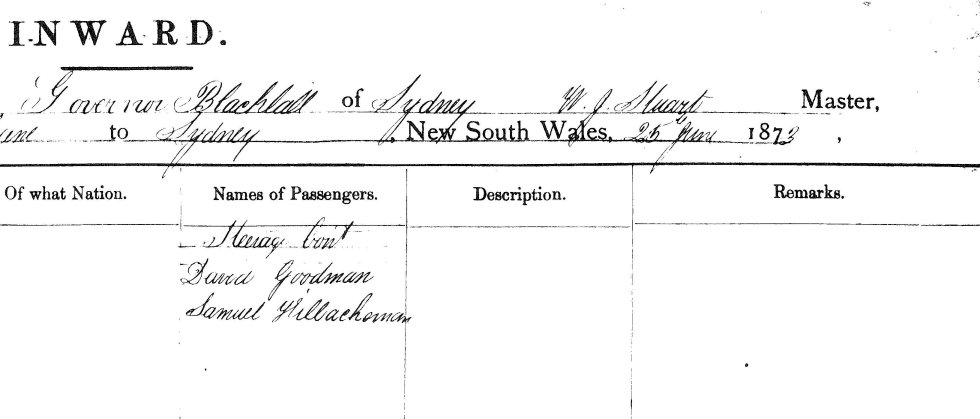 INWARD.
Governor Blackall of Sydney W. J. Stuart Master,
to Sydney, New South Wales, 25 June 1873,
Of what Nation. Names of Passengers. Description. Remarks.
Steerage Cont
David Goodman
Samuel